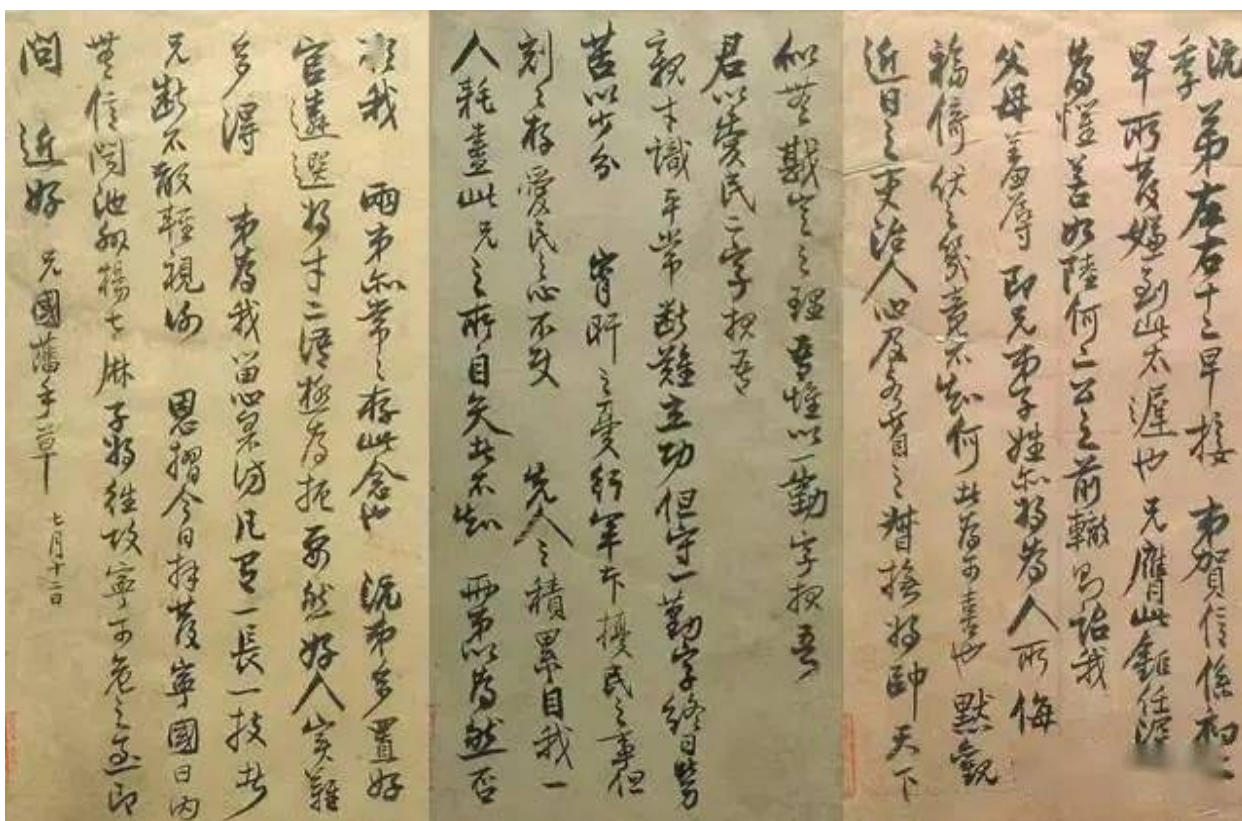 沅季弟左右十二早接 弟賀信係初二
早所發嫌到此太遲也兄膺此鉅任深
為懼若如陸何二公之前轍則詒我
父母羞辱即兄弟子姪亦將為人所侮
福倚伏之幾竟不知何者為可喜也默觀
近日之吏治人心及各省之督撫將帥天下
似無戡定之理吾惟以一勤字報吾
君以愛民二字報吾
親才識平常斷難立功但守一勤字終日勞
苦以少分 宵旰之憂行軍本擾民之事但
刻刻存愛民之心不使 先人之積累自我一
人耗盡此兄之所自矢者不知 兩弟以為然否
願我 兩弟亦常常存此念也 沅弟多置好
官遴選將才二語極為扼要然好人實難
多得 弟為我留心采訪凡有一長一技者
兄斷不敢輕視謝 恩摺今日拜發寧國日內
無信聞池州楊七麻子將往攻寧可危之至即
問 近好 兄國藩手草
七月十二日